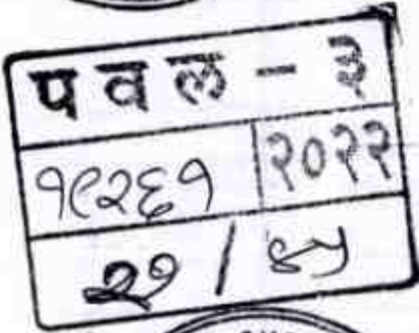 प व ल - ३
१९२६१ २०२२
२१ / ४५